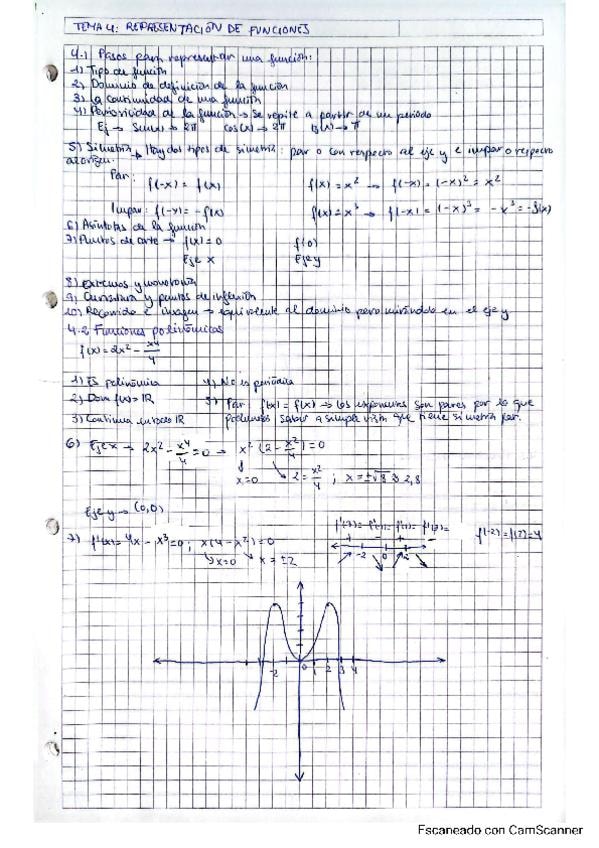 TEMA 4: REPRESENTACIÓN DE FUNCIONES
4.1 Pasos para representar una función:
1) Tipo de función
2) Dominio de definición de la función
3) La continuidad de una función
4) Periodicidad de la función → Se repite a partir de un periodo
Ej → Sen(x) → 2π cos(x) → 2π tg(x) → π
5) Simetría → Hay dos tipos de simetría: par o con respecto al eje y e impar o respecto
al origen.
Par: f(-x) = f(x) f(x) = x² → f(-x) = (-x)² = x²
Impar: f(-x) = -f(x) f(x) = x³ → f(-x) = (-x)³ = -x³ = -f(x)
6) Asíntotas de la función
7) Puntos de corte → f(x) = 0 f(0)
Eje x Eje y
8) Extremos y monotonía
9) Curvatura y puntos de inflexión
10) Recorrido e imagen → equivalente al dominio pero mirándolo en el eje y
4.2 Funciones polinómicas
f(x) = 2x² - x⁴/4
1) Es polinómica 4) No es periódica
2) Dom f(x) = IR 5) Par f(-x) = f(x) → Los exponentes son pares por lo que
3) Continua en todo IR podemos saber a simple vista que tiene simetría par.
6) Eje x → 2x² - x⁴/4 = 0 → x² (2 - x²/4) = 0
x = 0 2 = x²/4 ; x = ±√8 ≅ 2,8
Eje y → (0,0)
7) f'(x) = 4x - x³ = 0 ; x(4 - x²) = 0
x = 0 x = ±2
+ - + -
-2 0 2
f(-2) = f(2) = 4
-2 0 1 2 3 4
Escaneado con CamScanner